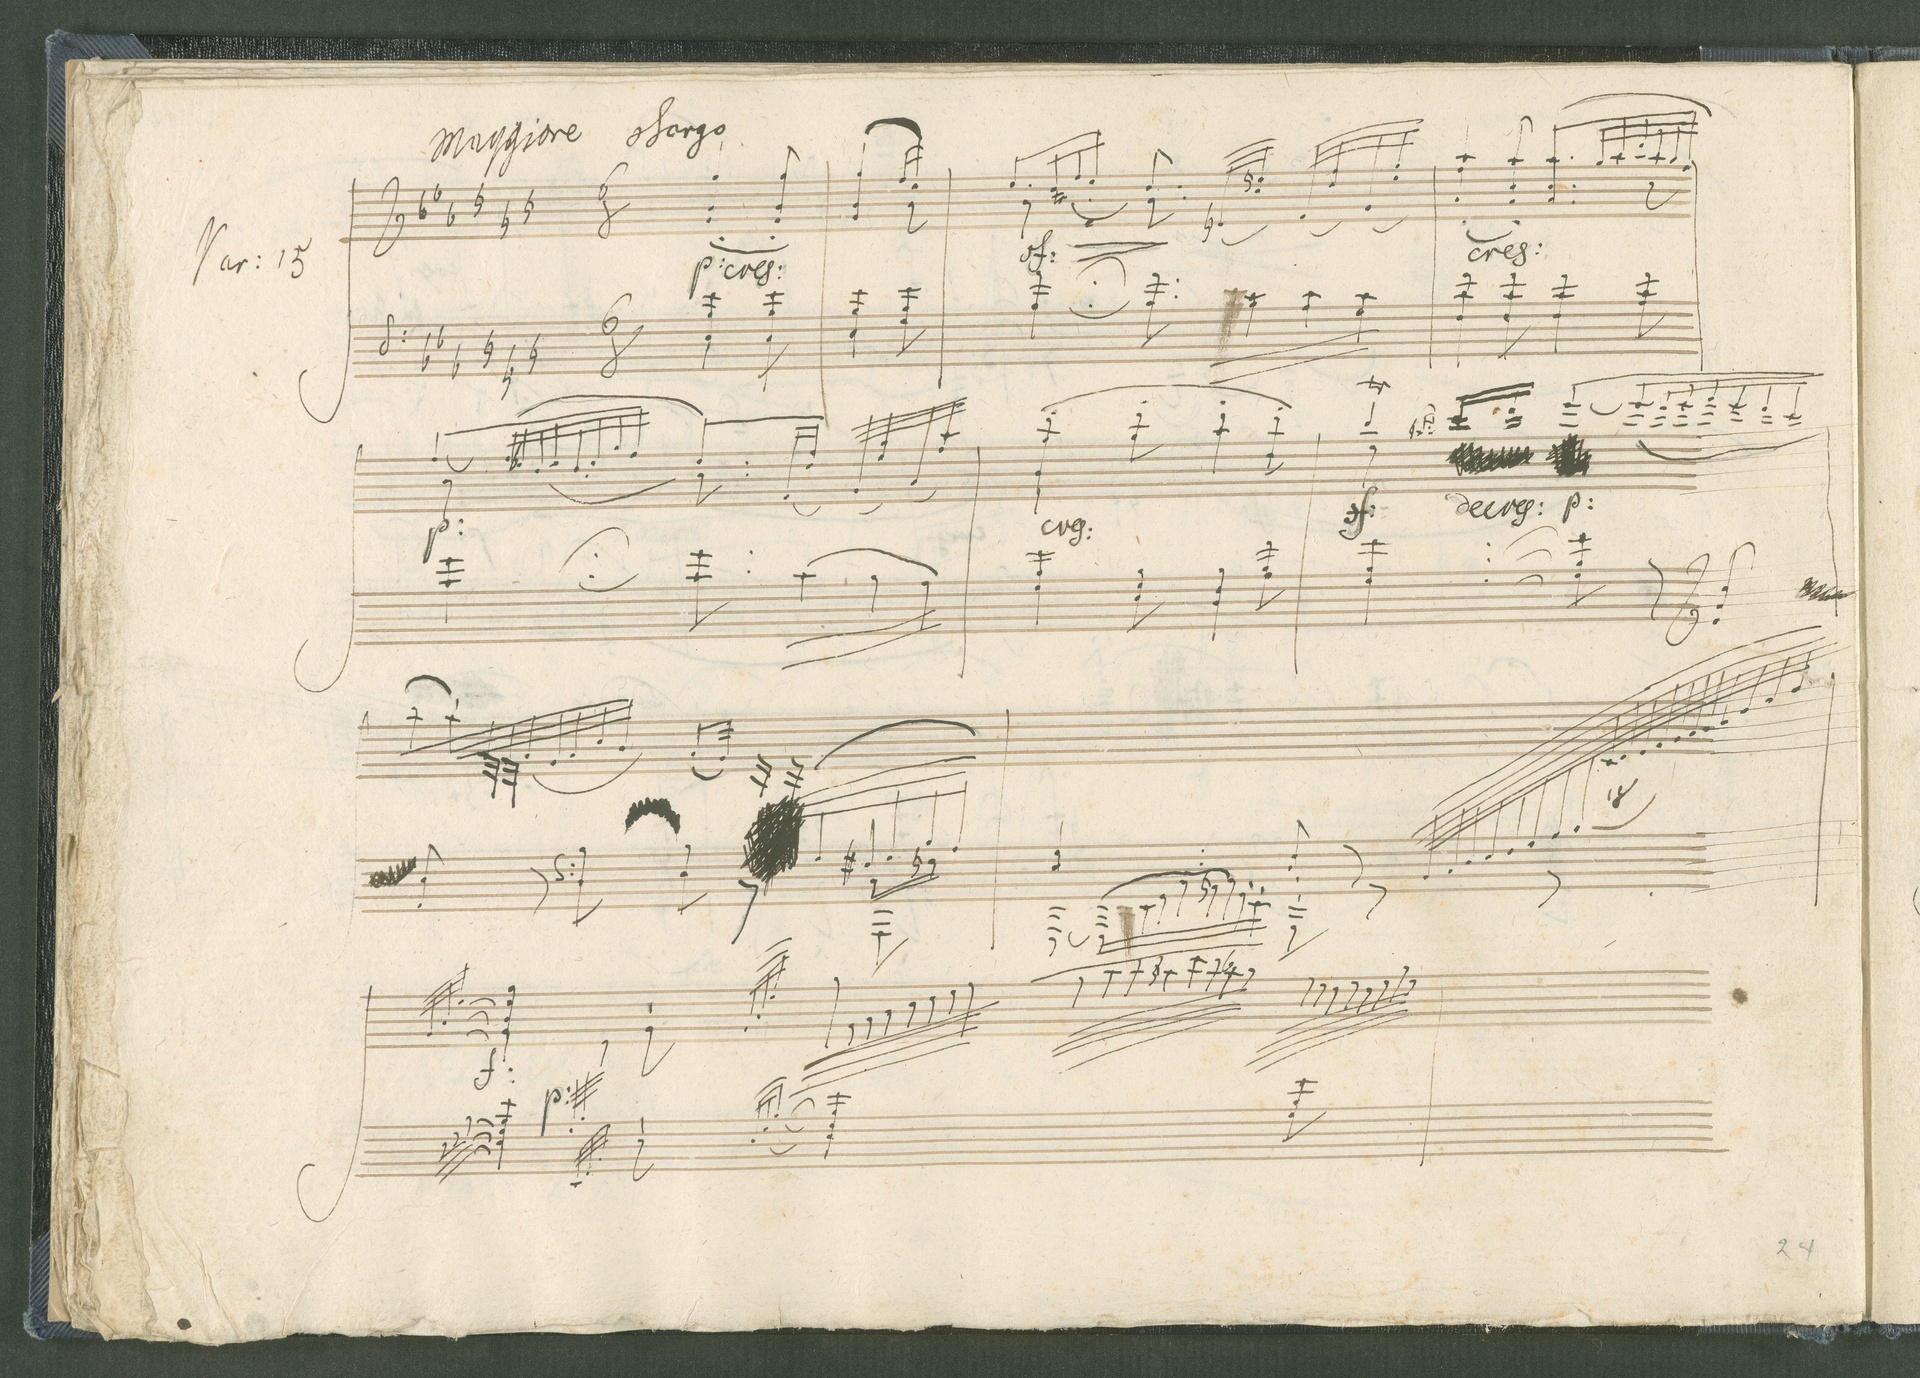 Maggiore Largo
Var: 15
p: cres:
sf:
cres:
p:
cres:
sf:
decres: p:
18
f:
p:
24